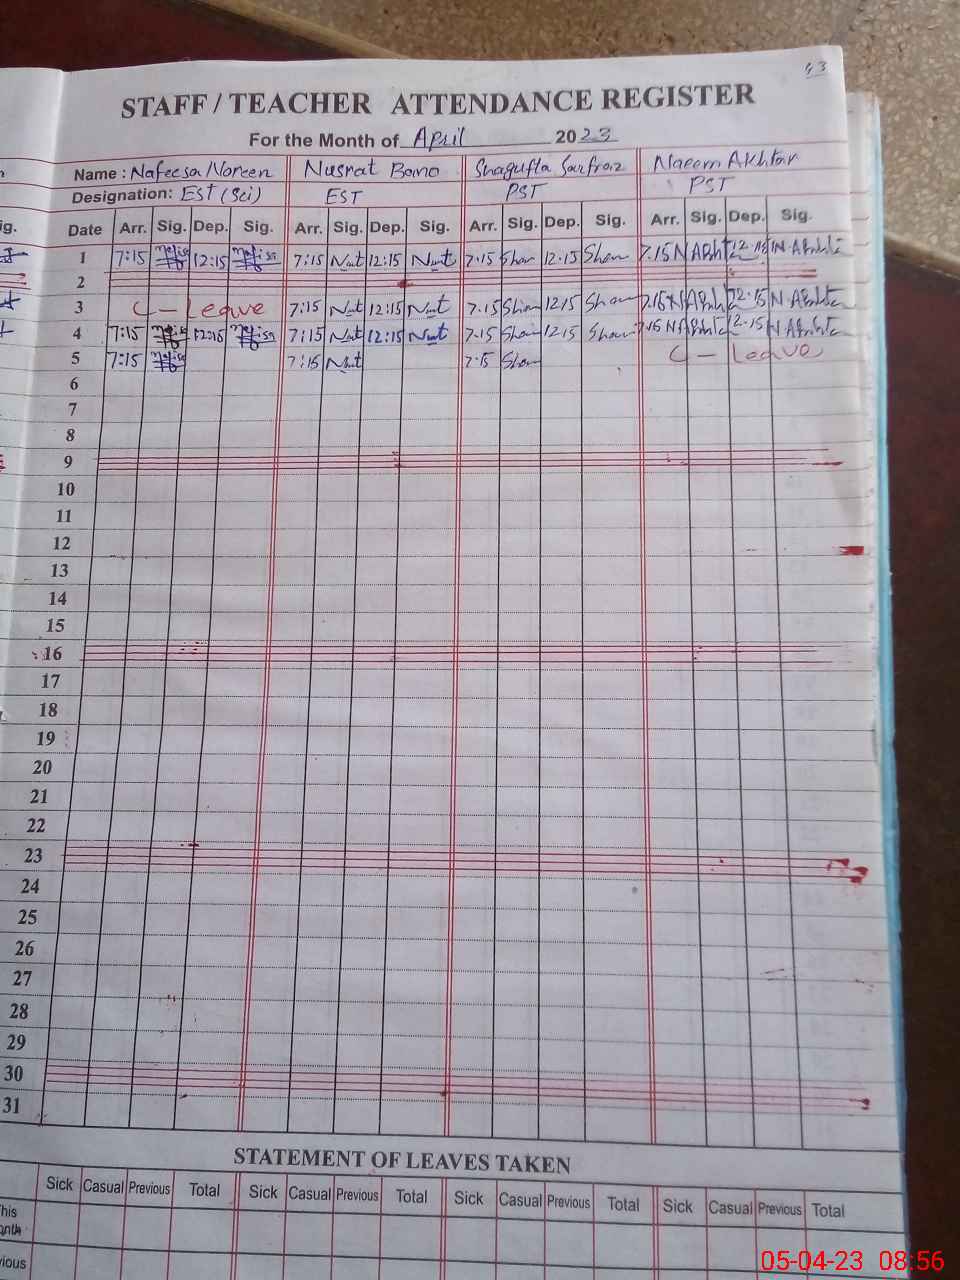 43
STAFF / TEACHER ATTENDANCE REGISTER
For the Month of April 2023
Name : Nafeesa Noreen Nusrat Bano Shagufta Sarfraz Naeem Akhtar
Designation: EST (Sci) EST PST PST
ig. Date Arr. Sig. Dep. Sig. Arr. Sig. Dep. Sig. Arr. Sig. Dep. Sig. Arr. Sig. Dep. Sig.
1 7:15 12:15 7:15 12:15 7.15 Sham 12.15 Sham 7.15 12.15
2
3 C - Leave 7:15 12:15 7.15 Sham 12.15 Sham 7.15 12.15
4 7:15 12:15 7:15 12:15 7.15 Sham 12.15 Sham 7.15 12.15
5 7:15 7:15 7.15 Sham C - Leave
6
7
8
9
10
11
12
13
14
15
16
17
18
19
20
21
22
23
24
25
26
27
28
29
30
31
STATEMENT OF LEAVES TAKEN
Sick Casual Previous Total Sick Casual Previous Total Sick Casual Previous Total Sick Casual Previous Total
his
onth
vious
05-04-23 08:56